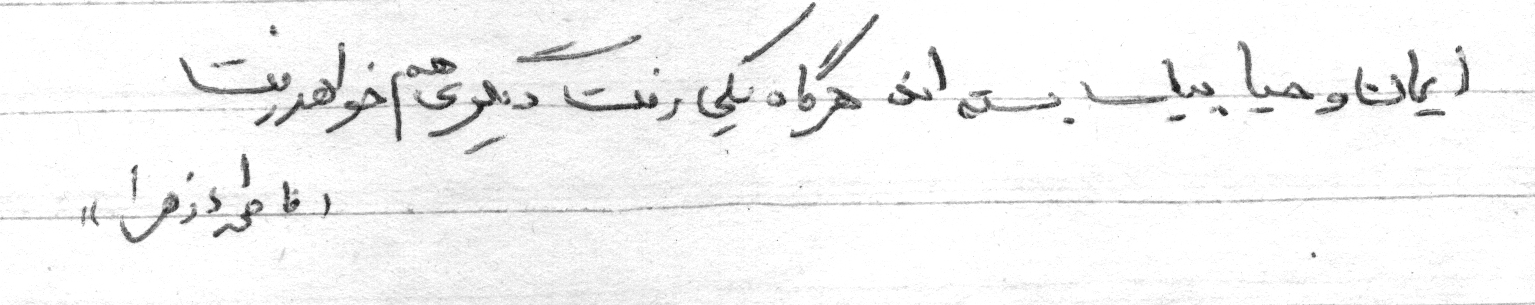 ایمان و حیا بهم بسته اند هرگاه یکی رفت دیگری هم خواهد رفت
(فاطمه زهرا))